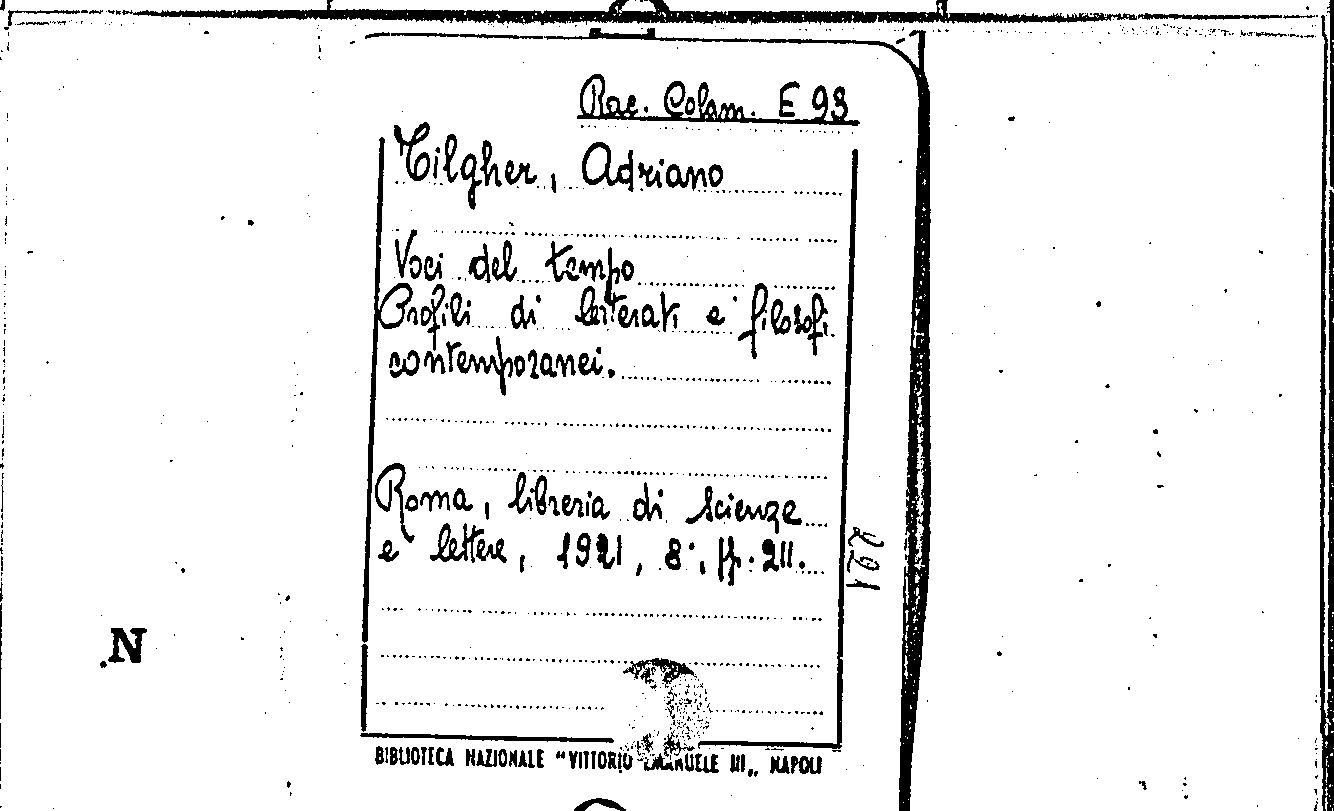 Rac. Colam. E 93
Tilgher, Adriano
Voci del tempo
Profili di letterati e filosofi
contemporanei.
Roma, libreria di scienze
e lettere, 1921, 8°, pp. 211.
N
BIBLIOTECA NAZIONALE “VITTORIO EMANUELE III„ NAPOLI